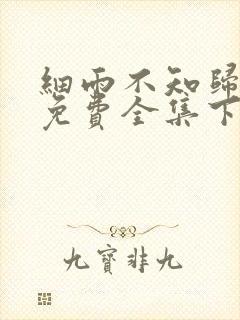 細雨不知歸
免費全集下
九寶非九